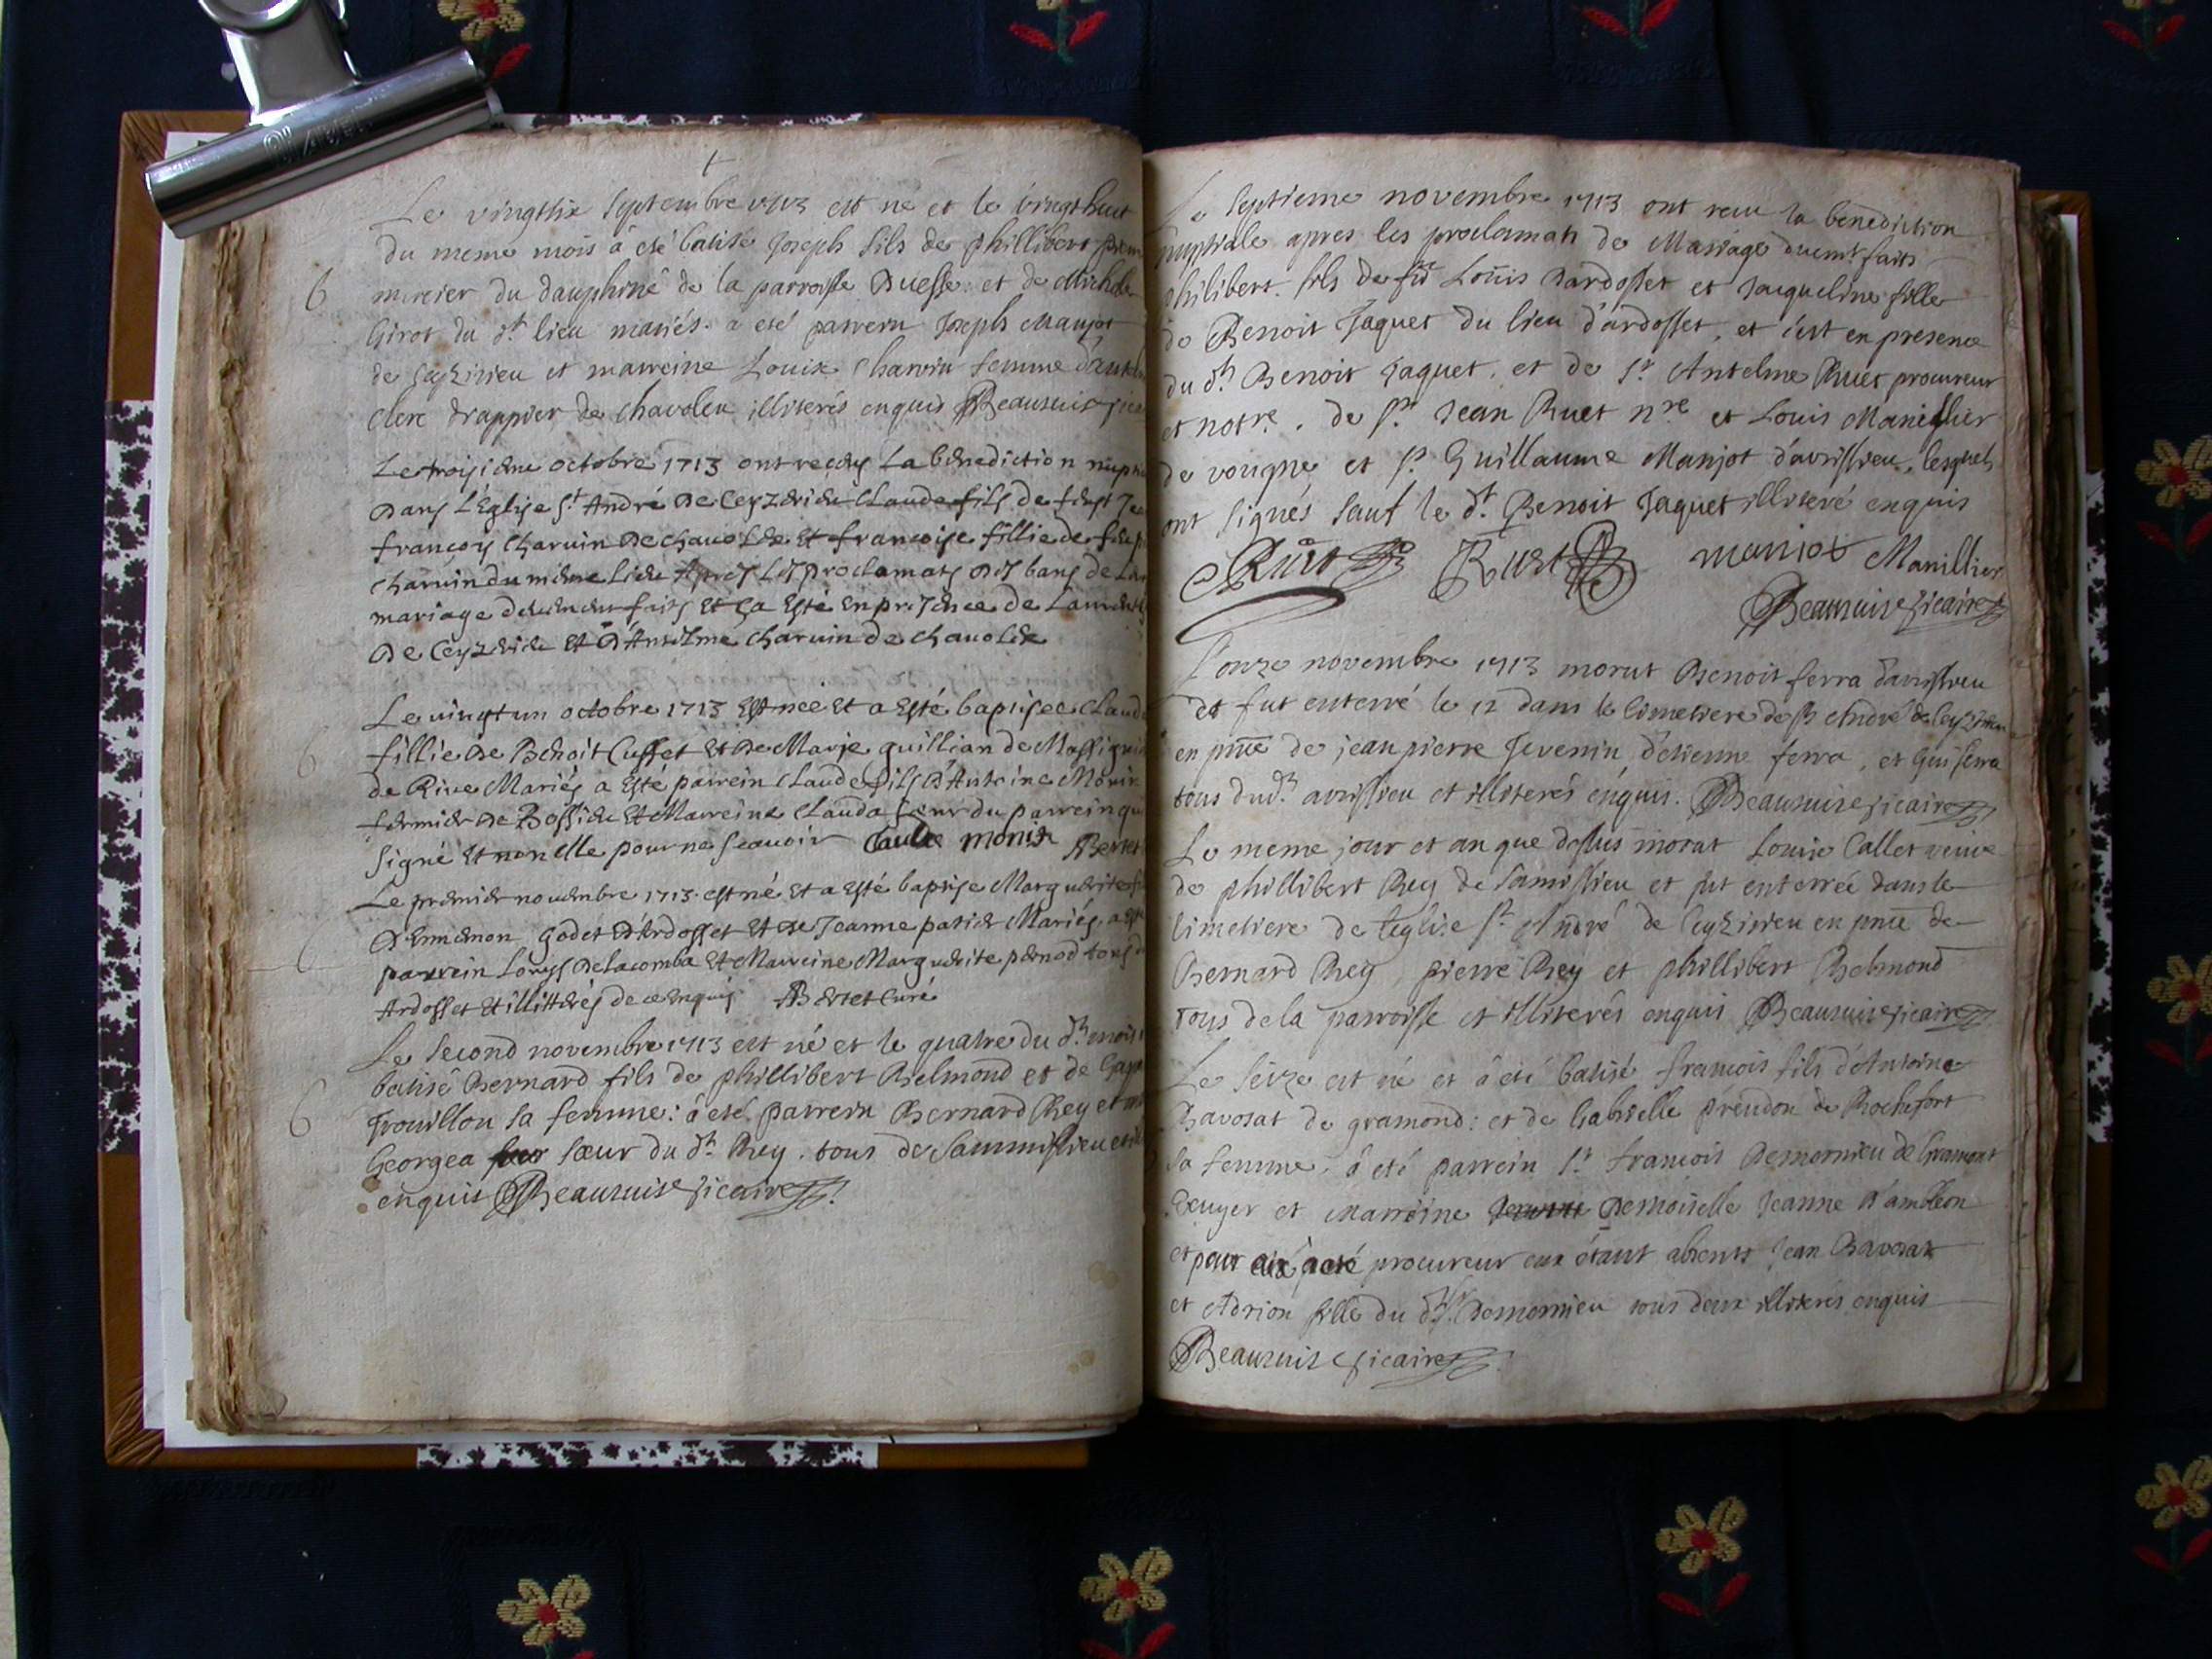 Le vingtsix septembre 1713 est né et le vingthuit
du meme mois à eté batisé Joseph fils de phillibert
mercier du dauphiné de la parroisse Duesse et de Michele
Girot du dt. lieu mariés. a eté parrein Joseph Manjot
de Ceyzirieu et marreine Louise Charvin femme
clerc drappier de chavoley illiterés enquis Beauruise
Le troisieme octobre 1713 ont receus La benediction
Dans L'Eglise St André De Ceyzerieu Claude fils de feust
françoys Charuin De chauolée Et françoise fillie de
charuin du mesme lieu Après Les proclamats des bans de
mariage deuement faits Et ça Esté En presence de
De Ceyzerieu Et D'Anselme charuin de chauolée
Le uingt un octobre 1713 Est née Et a Esté baptisée
fillie De Benoit Cusset Et De Marie guillian de
de Rive Mariés a Esté parrein Claude fils D'Antoine
fermier De Bossieu Et Marreine Clauda seur du parrein
signé Et non elle pour ne scauoir Claude monin Bertet
Le premier nouembre 1713 est né Et a Esté baptise Marguerite
D'Ennemon godet D'Ardosset Et De Jeanne patier Mariés.
parrein Louys Delacomba Et Marreine Marguerite pernod tous
Ardosset Et illitterés de ce enquis Bertet Curé
Le second novembre 1713 est né et le quatre du dt. mois
batisé Bernard fils de phillibert Belmond et de
Trouillou sa femme: à eté parrein Bernard Rey et
Georgea sœur du dt. Rey. tous de Sammissieu
enquis Beauruise vicaire
Le septieme novembre 1713 ont receu la benediction
nupptiale apres les proclamats de Mariage duemt. faits
philibert fils de fû Loüis Dardosset et Jacqueline fille
de Benoit Jaquet du lieu d'ardosset, et c'est en presence
du dt. Benoit Jaquet, et de Sr. Antelme Ruet procureur
et notre. de Sr. Jean Ruet nre et Louis Manillier
de vongne, et Sr. Guillaume Manjot d'avrissieu. lesquels
ont signés sauf le dt. Benoit Jaquet illiteré enquis
Ruet Ruet manjot Manillier
Beauruise vicaire
L'onze novembre 1713 morut Benoit ferra davrissieu
et fut enterré le 12 dans le cimetiere de St André de Ceyzirieu
en pnce de jean pierre Jevenin, d'etienne ferra, et Gui ferra
tous dud. avrissieu et illiterés enquis. Beauruise vicaire
Le meme jour et an que dessus morut Louise Callet veuve
de phillibert Rey de Samissieu et fut enterrée dans le
cimetiere de leglise St. André de Ceyzirieu en pnce de
Bernard Rey, pierre Rey et phillibert Belmond
tous de la parroisse et illiterés enquis Beauruise vicaire
Le seize est né et à eté batisé francois fils d'Antoine
Bavosat de gramond: et de Gabrielle prendon de Rochefort
sa femme. à eté parrein Sr. francois Demornieu de Gramont
Ecuyer et Marreine Demoiselle Jeanne D'ambleon
et pour eux à eté procureur eux étant absents Jean Bavosat
et Adrion fille du dt. Sr. Demornieu tous deux illiterés enquis
Beauruise vicaire